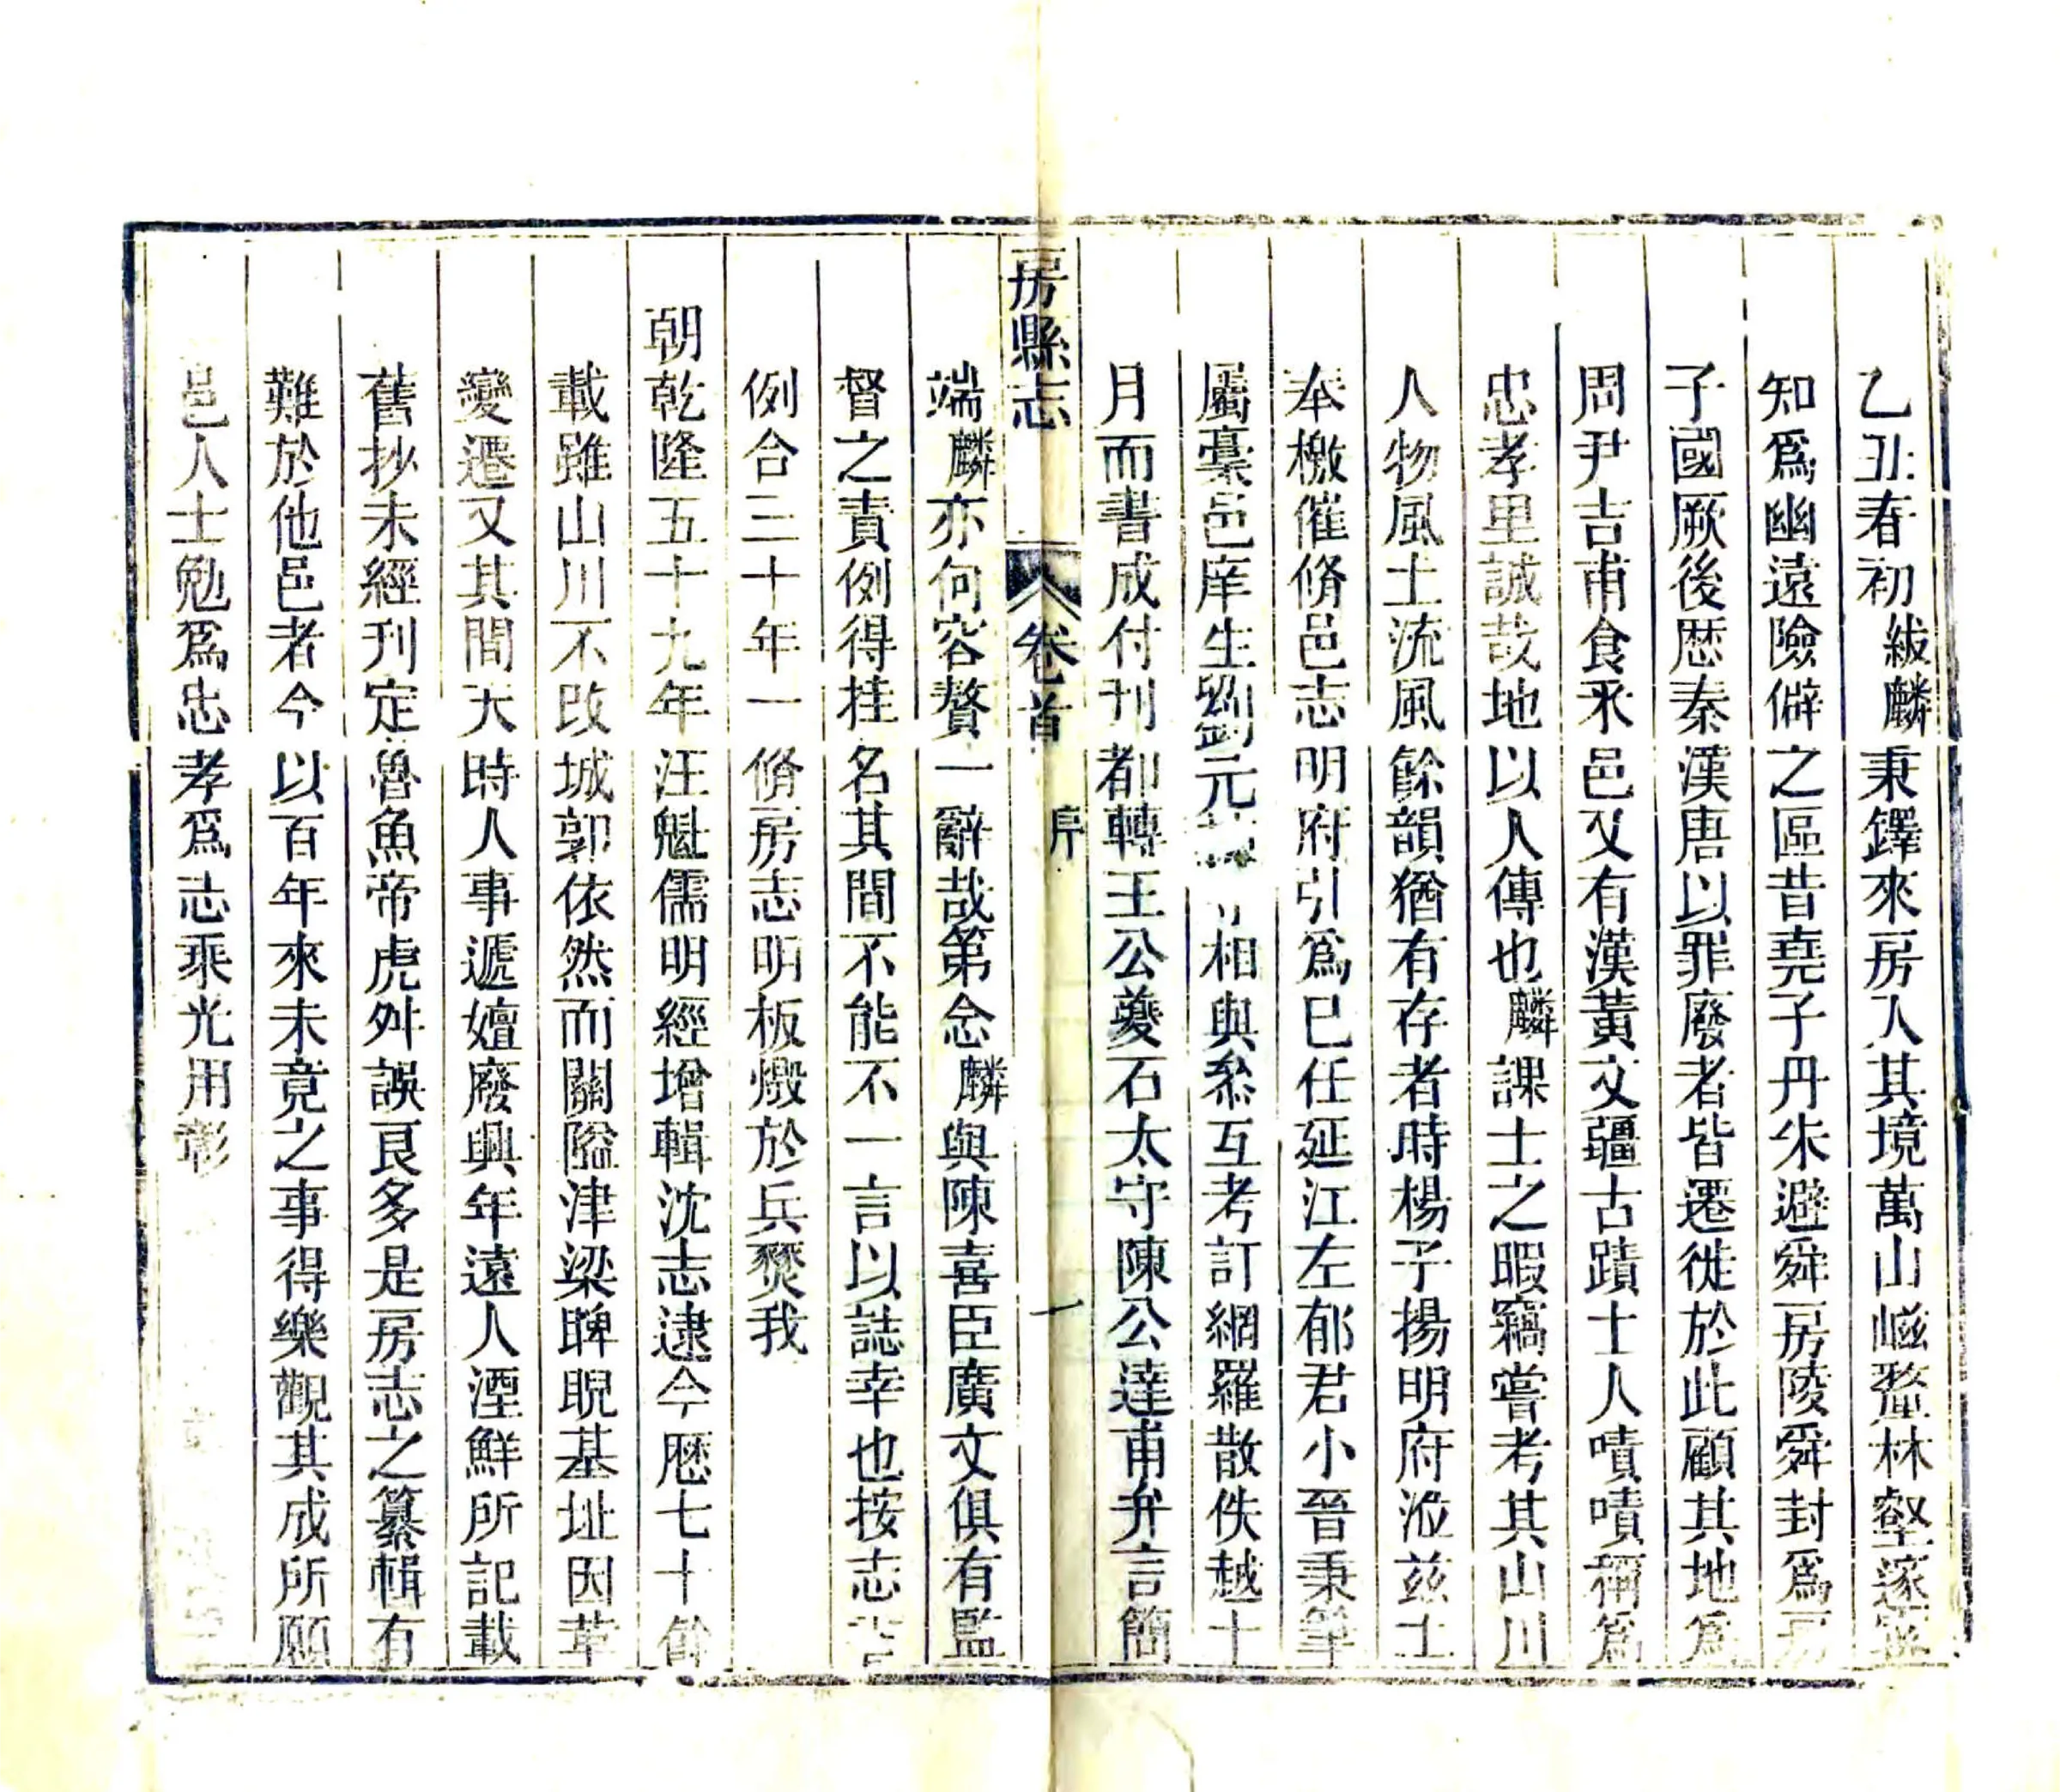 乙丑春初紱麟秉鐸來房入其境萬山巉盤林壑邃密
知爲幽遠險僻之區昔堯子丹朱避舜房陵舜封爲房
子國厥後歷秦漢唐以罪廢者皆遷徙於此顧其地爲
周尹吉甫食釆邑又有漢黃文疆古蹟士人嘖嘖稱爲
忠孝里誠哉地以人傳也麟課士之暇竊嘗考其山川
人物風土流風餘韻猶有存者時楊子揚明府涖兹土
奉檄催脩邑志明府引爲巳任延江左郁君小晉秉筆
屬稾邑庠生劉元相與叅互考訂網羅散佚越十
月而書成付刊都轉王公夔石太守陳公達甫弁言簡
房縣志 卷首 序 一
端麟亦何容贅一辭哉第念麟與陳喜臣廣文俱有監
督之責例得挂名其間不能不一言以誌幸也按志
例合三十年一脩房志明板燬於兵燹我
朝乾隆五十九年汪魁儒明經增輯沈志逮今歷七十餘
載雖山川不改城郭依然而關隘津梁睥睨基址因革
變遷又其間天時人事遞嬗廢興年遠人湮鮮所記載
舊抄未經刊定魯魚帝虎舛誤良多是房志之纂輯有
難於他邑者今以百年來未竟之事得樂觀其成所願
邑人士勉爲忠孝爲志乘光用彰